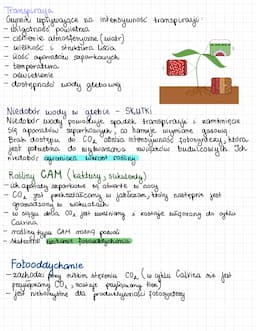 Transpiracja
Czynniki wpływające na intensywność transpiracji:
- wilgotność powietrza
- ciśnienie atmosferyczne (wiatr)
- wielkość i struktura liścia
- ilość aparatów szparkowych
- temperatura
- oświetlenie
- dostępność wody glebowej
Niedobór wody w glebie - SKUTKI
Niedobór wody powoduje spadek transpiracji i zamknięcie
się aparatów szparkowych, co hamuje wymianę gazową.
Brak dostępu do CO₂ obniża intensywność fotosyntezy, która
jest potrzebna do wytwarzania związków budulcowych. Ich
niedobór ogranicza wzrost rośliny
Rośliny CAM (kaktusy, sukulenty)
- ich aparaty szparkowe są otwarte w nocy
- CO₂ jest przekształcany w jabłczan, który następnie jest
gromadzony w wakuolach
- w ciągu dnia CO₂ jest uwalniany i zostaje włączony do cyklu
Calvina
- rośliny typu CAM rosną powoli
- fotooddychania
Fotooddychanie
- zachodzi przy niskim stężeniu CO₂ (w cyklu Calvina nie jest
przyłączany CO₂, zostaje przyłączany tlen)
- jest niekorzystne dla produktywności fotosyntezy